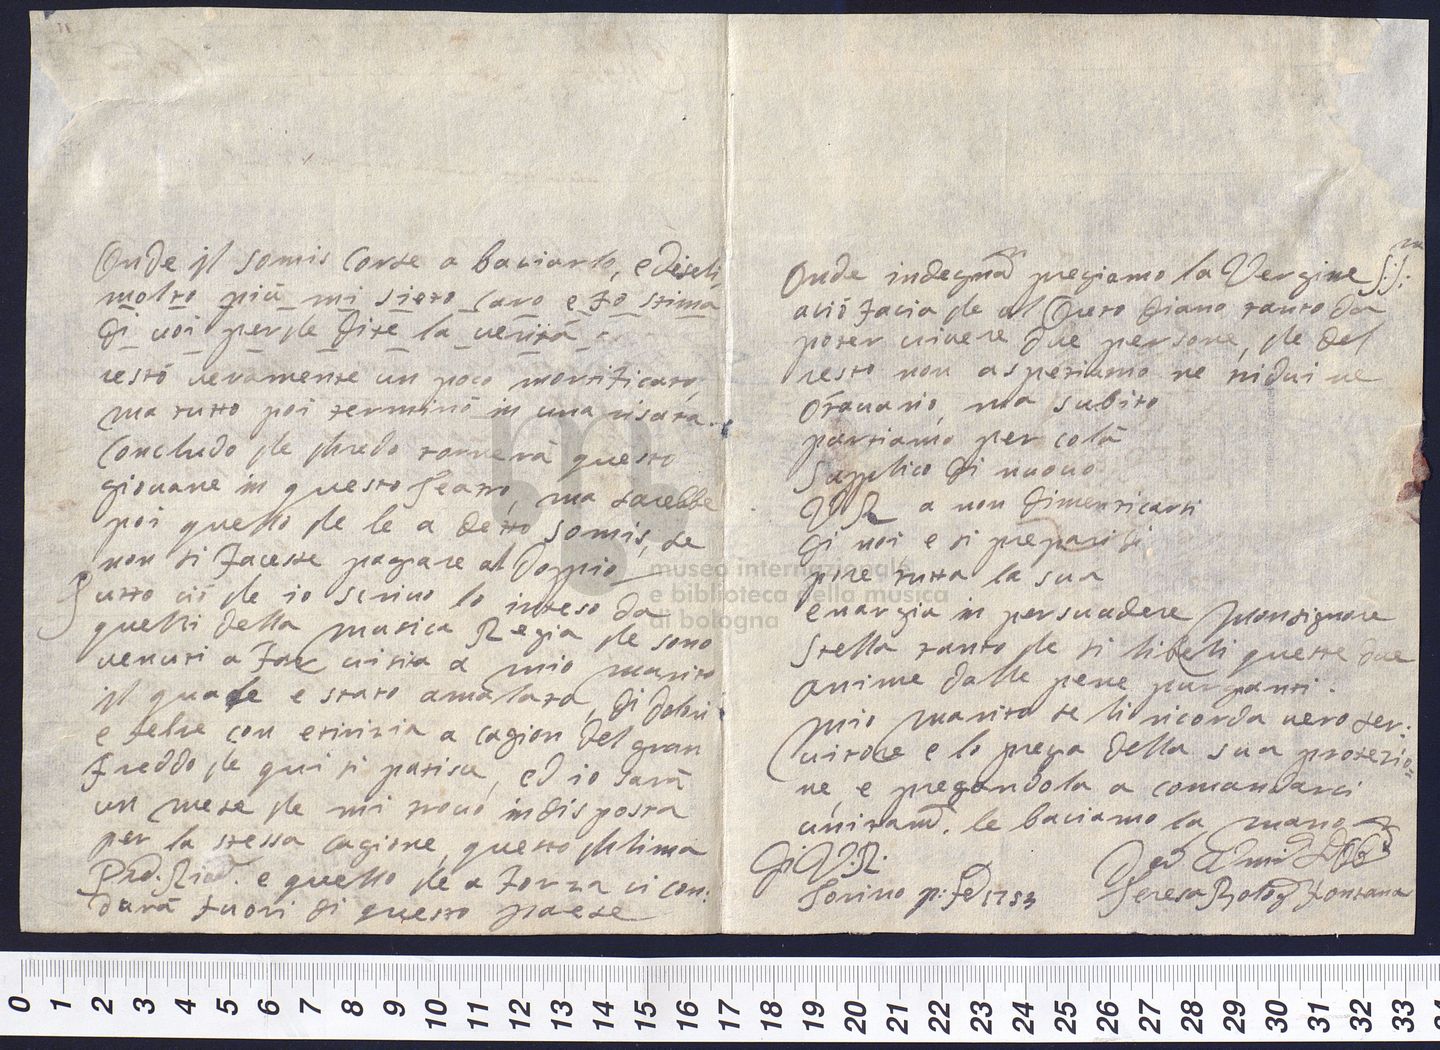 Onde il Somis corse a baciarlo, e diseli,
molto più mi siete caro e fo stima
di voi perche dite la verità
restò veramente un poco mortificato,
ma tutto poi terminò in una risata.
Concludo che chredo tornerà questo
giovane in questo Teatro, ma sarebbe
poi quello che le a detto Somis, se
non si facesse pagare al doppio
Tutto ciò che io scrivo lo inteso da
quelli della musica Regia che sono
venuti a far visita a mio marito
il quale e stato amalato, di dolori
e febre con etirizia a cagion del gran
freddo che qui si patisce, ed io sarà
un mese che mi trovo indisposta
per la stessa cagione, questo chlima
e quello che a forza ci con:
durà fuori di questo paese
Onde indegnam pregiamo la Vergine SS:ma
aciò facia che al diano tanto da
poter vivere due persone, che del
resto non aspetiamo ne tridui ne
Otavario, ma subito
partiamo per colà
Supplico di nuovo
V R a non dimenticarsi
di noi e si prepari di
pore tutta la sua
energia in persuadere Monsignore
Stella tanto che si liberi queste due
anime dalle pene purganti.
Mio marito se li ricorda vero ser:
vitore e lo prega della sua protezio=
ne, e pregandola a comandarci
unitam. le baciamo la mano
Di V: R:
Torino p: Fe 1753
Teresa Bolog Fontana
museo internazionale
e biblioteca della musica
di bologna
0 1 2 3 4 5 6 7 8 9 10 11 12 13 14 15 16 17 18 19 20 21 22 23 24 25 26 27 28 29 30 31 32 33